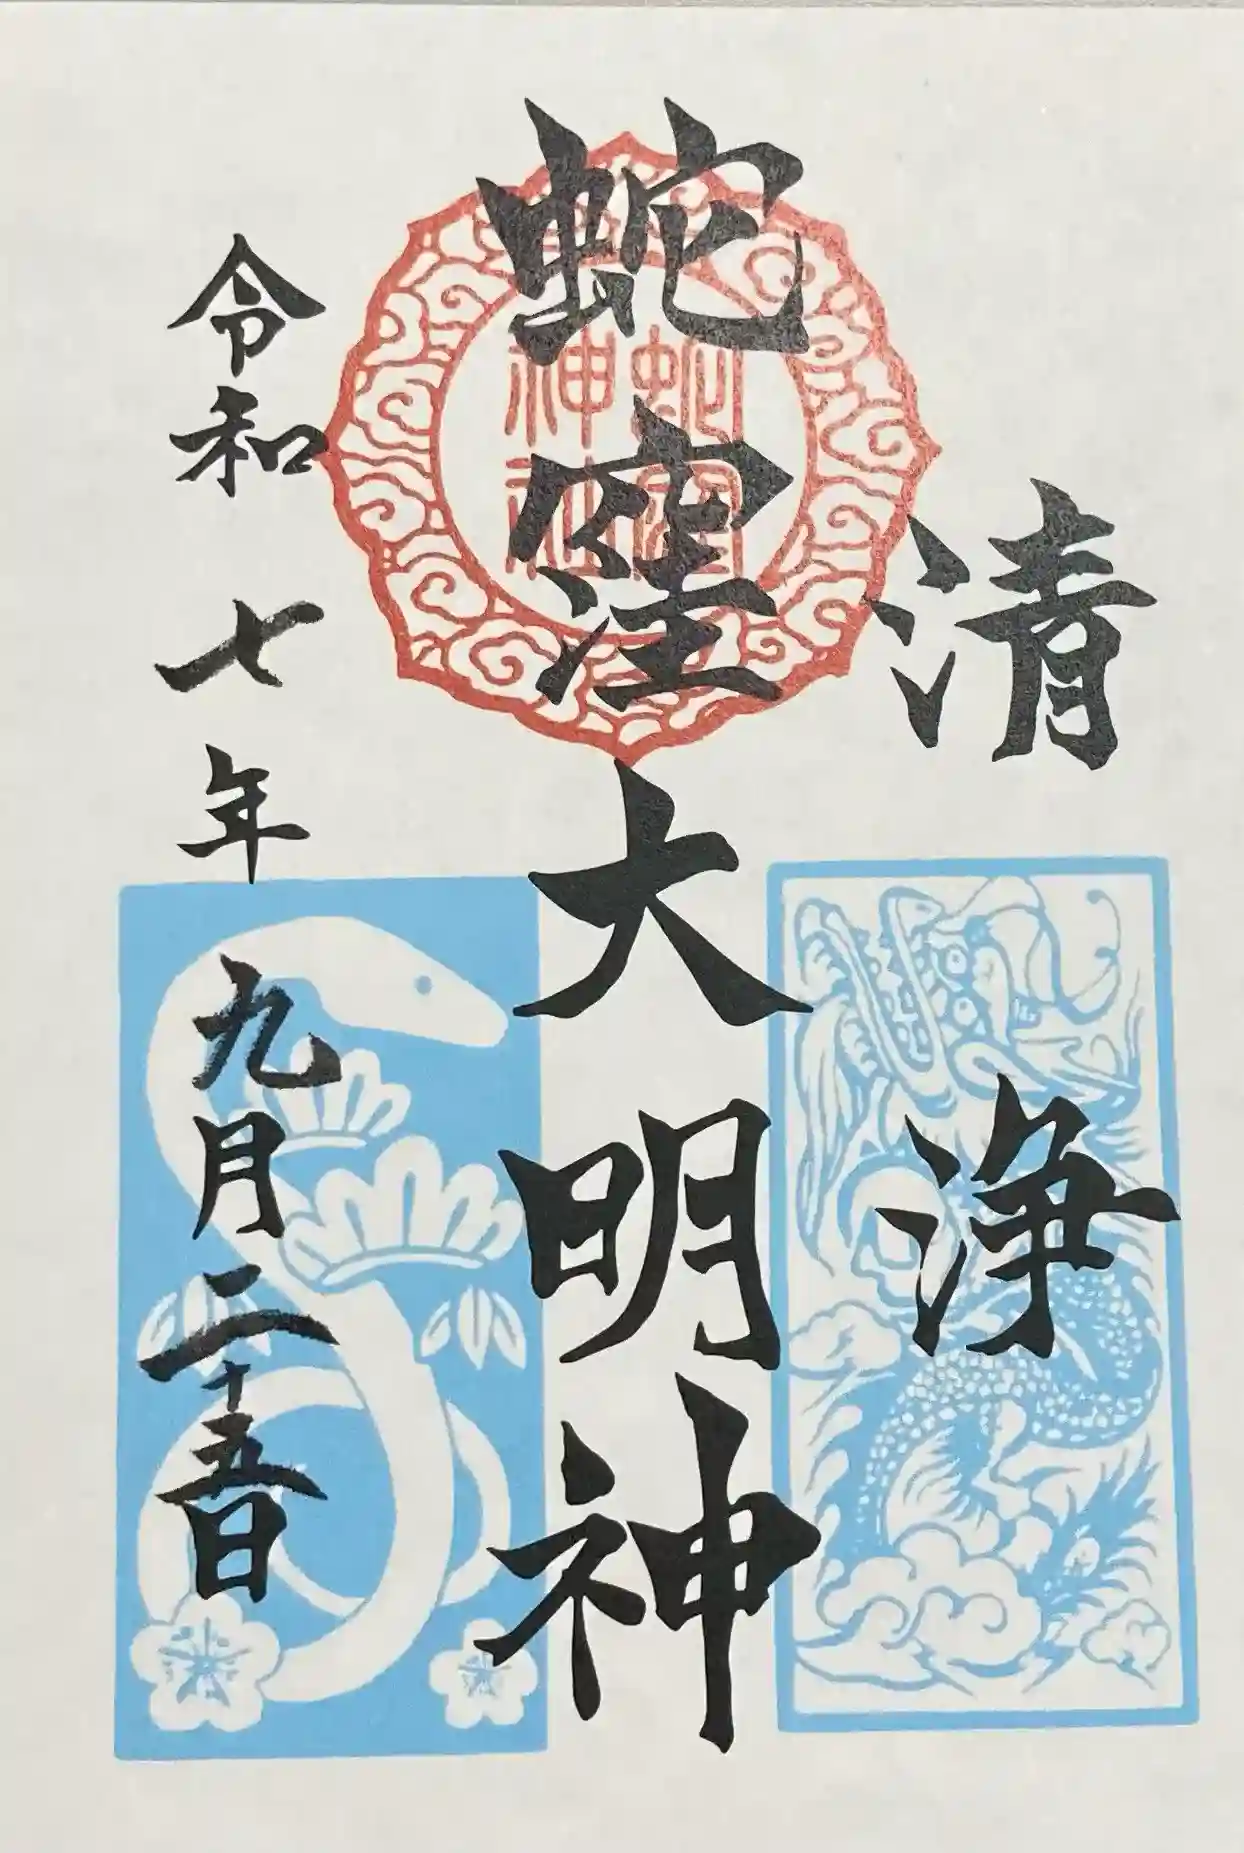 清浄
蛇窪大明神
蛇窪
神社
令和七年九月二十五日